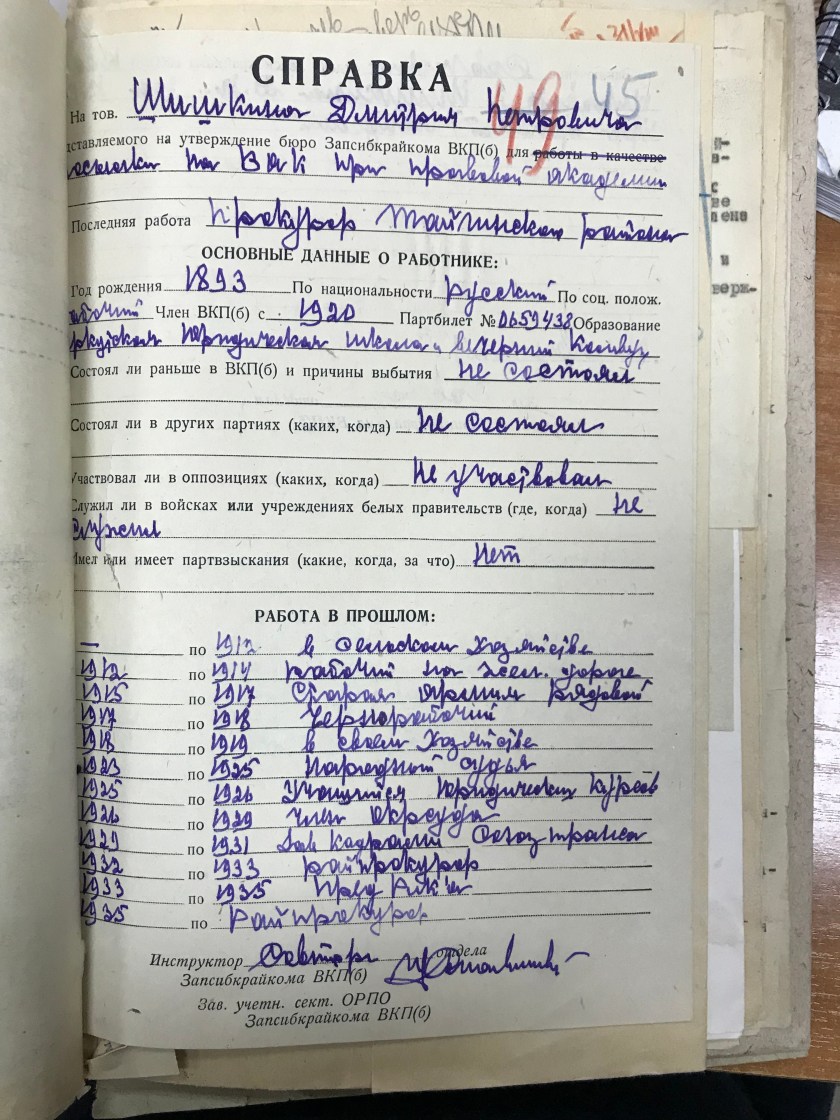 49 45
СПРАВКА
На тов. Шишкина Дмитрия Петровича
дставляемого на утверждение бюро Запсибкрайкома ВКП(б) для работы в качестве
посылки на ВАК при правовой академии
Последняя работа Прокурор Тайгинского района
ОСНОВНЫЕ ДАННЫЕ О РАБОТНИКЕ:
Год рождения 1893 По национальности русский По соц. полож.
рабочий Член ВКП(б) с 1920 Партбилет № 0659438 Образование
юридическая школа и вечерний Комвуз
Состоял ли раньше в ВКП(б) и причины выбытия не состоял
Состоял ли в других партиях (каких, когда) не состоял
Участвовал ли в оппозициях (каких, когда) не участвовал
Служил ли в войсках или учреждениях белых правительств (где, когда) не
служил
Имел или имеет партвзыскания (какие, когда, за что) нет
РАБОТА В ПРОШЛОМ:
— по 1912 в сельском хозяйстве
1912 по 1914 рабочий на жел. дороге
1915 по 1917 Старая армия рядовой
1917 по 1918 Чернорабочий
1918 по 1919 в своем хозяйстве
1923 по 1925 Народный судья
1925 по 1926 Учащийся юридических курсов
1926 по 1929 Член окрсуда
1929 по 1931 Зав кадрами Союзтранса
1932 по 1933 райпрокурор
1933 по 1935 Пред РИК'а
1935 по Райпрокурор
Инструктор отдела
Запсибкрайкома ВКП(б)
Зав. учетн. сект. ОРПО
Запсибкрайкома ВКП(б)